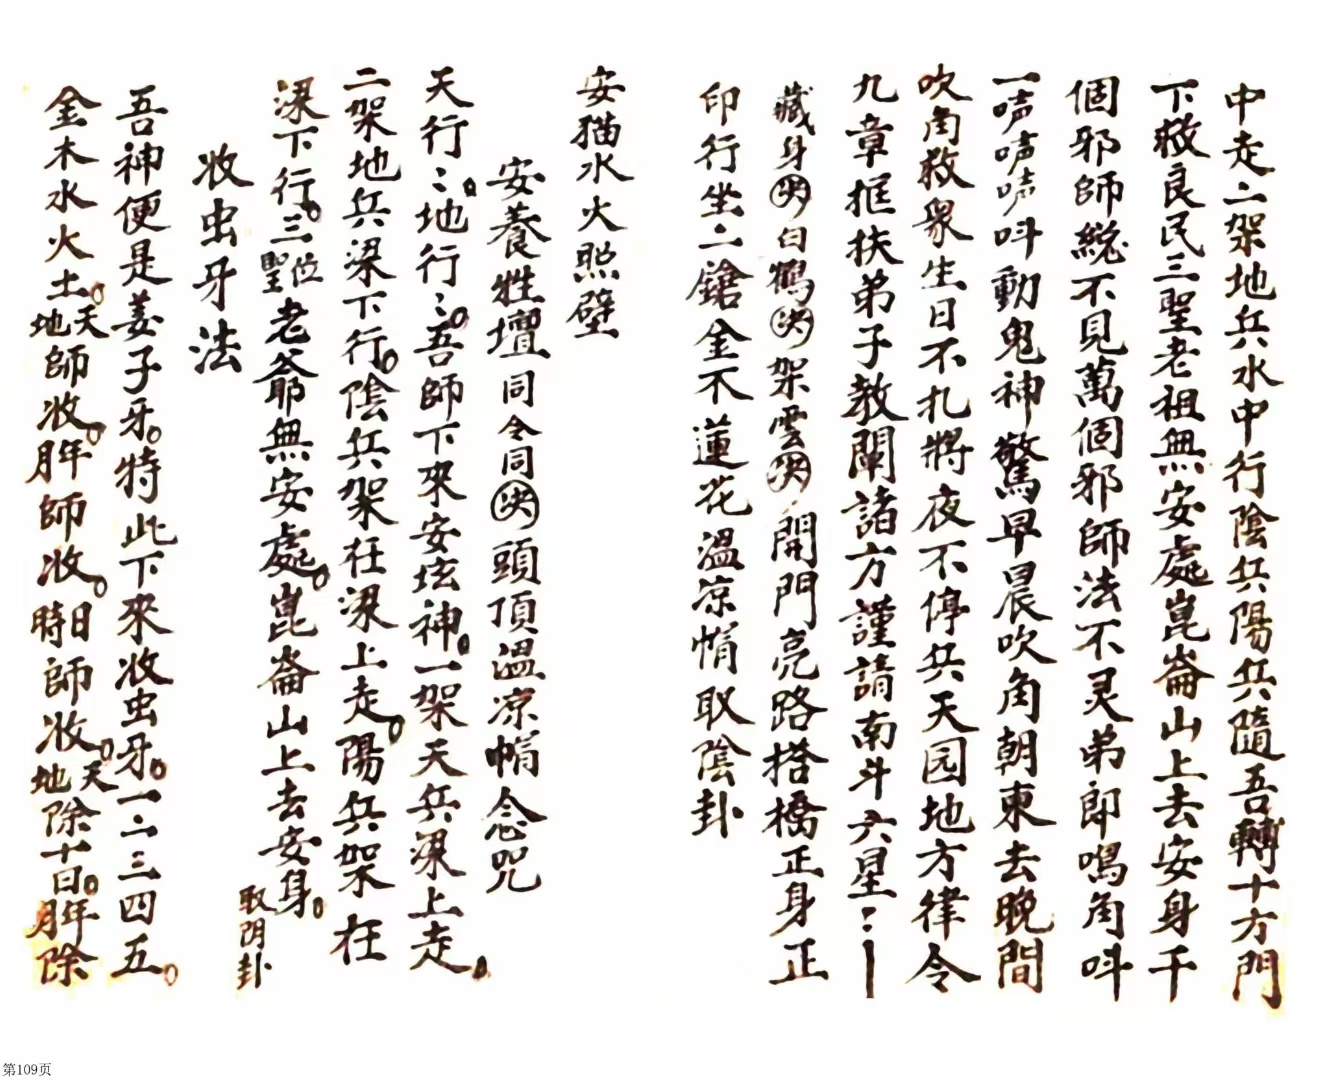 中走二架地兵水中行陰兵陽兵隨吾轉十方門
下救良民三聖老祖無安處崑崙山上去安身千
個邪師總不見萬個邪師法不灵弟郎鳴角呌
一声声声呌動鬼神驚早晨吹角朝東去晚間
吹角救衆生日不扎將夜不停兵天园地方律令
九章框扶弟子教闡諸方謹請南斗六星
藏身決白鶴決架雲決開門亮路搭橋正身正
印行坐二鎗金不蓮花溫凉帽取陰卦
安猫水火照壁
安養牲壇同令同決頭頂溫凉帽念咒
天行：地行：吾師下來安坛神一架天兵梁上走
二架地兵梁下行陰兵架在梁上走陽兵架在
梁下行三位聖老爺無安處崑崙山上去安身取阴卦
收虫牙法
吾神便是姜子牙特此下來收虫牙一二三四五
金木水火土天地師收年月師收日時師收天地除十日年月除
第109页